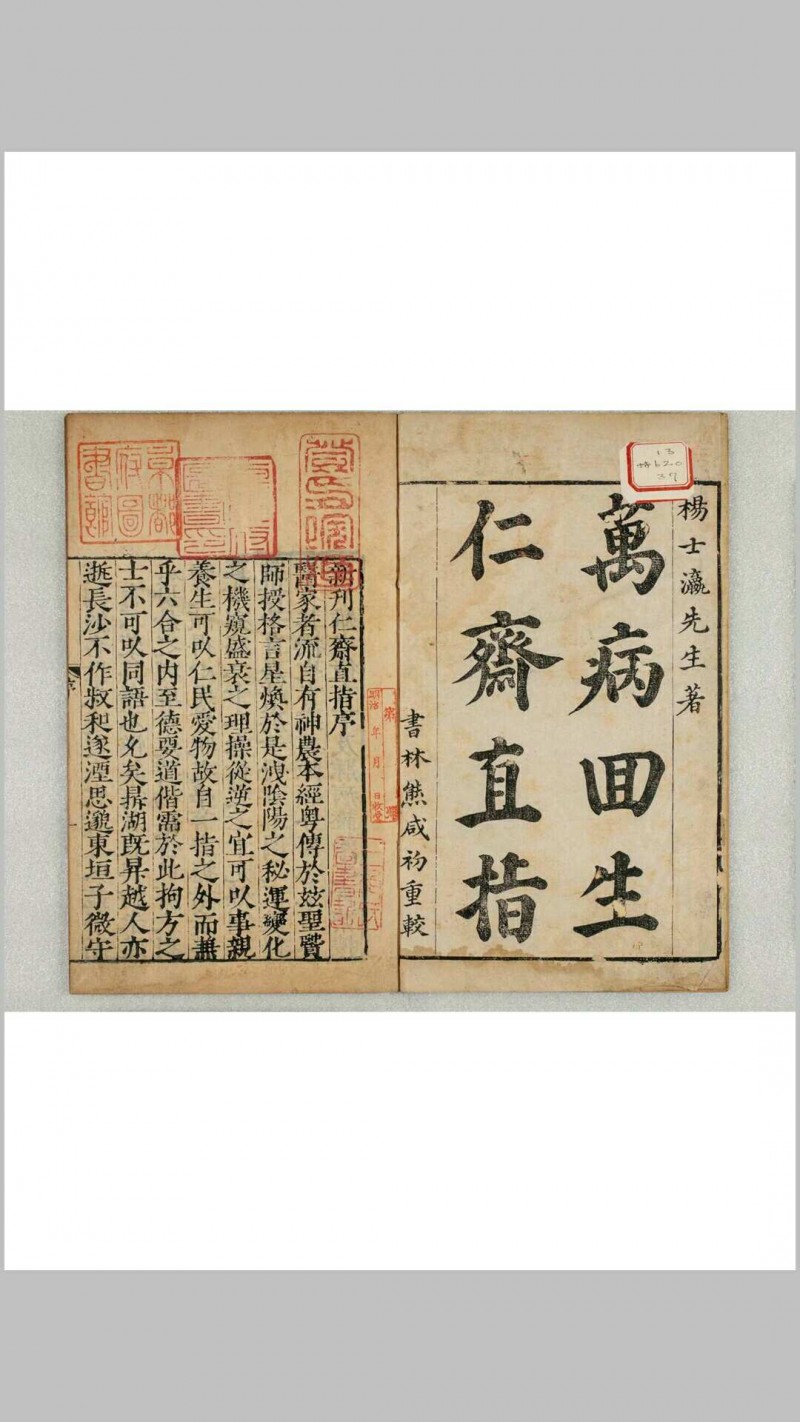 楊士瀛先生著
萬病回生
仁齋直指
書林熊咸初重較
新刊仁齋直指序
醫家者流自有神農本經粤傳於玆聖賢
師授格言星煥於是洩陰陽之秘運變化
之機窺盛衰之理操從逆之宜可㕥事親
養生可㕥仁民愛物故自一指之外而無
乎六合之内至德要道偕需於此拘方之
士不可㕥同語也允矣鼎湖旣昇越人亦
逝長沙不作叔和遂湮思邈東垣子微守
序
一
京都
府圖
書館
13
620
37
明治 年 月 日